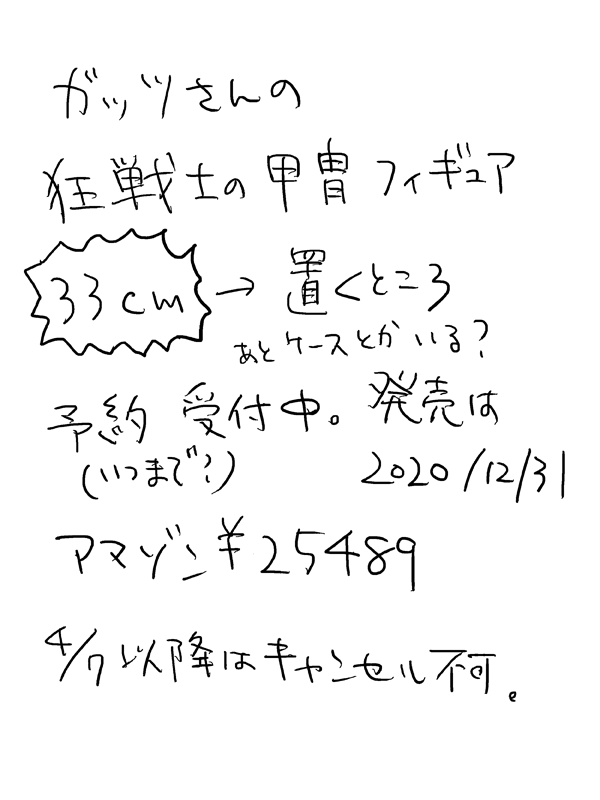 ガッツさんの
狂戦士の甲冑フィギュア
33cm → 置くところ
あとケースとかいる?
予約受付中。発売は
(いつまで?) 2020/12/31
アマゾン¥25489
4/7以降はキャンセル不可。